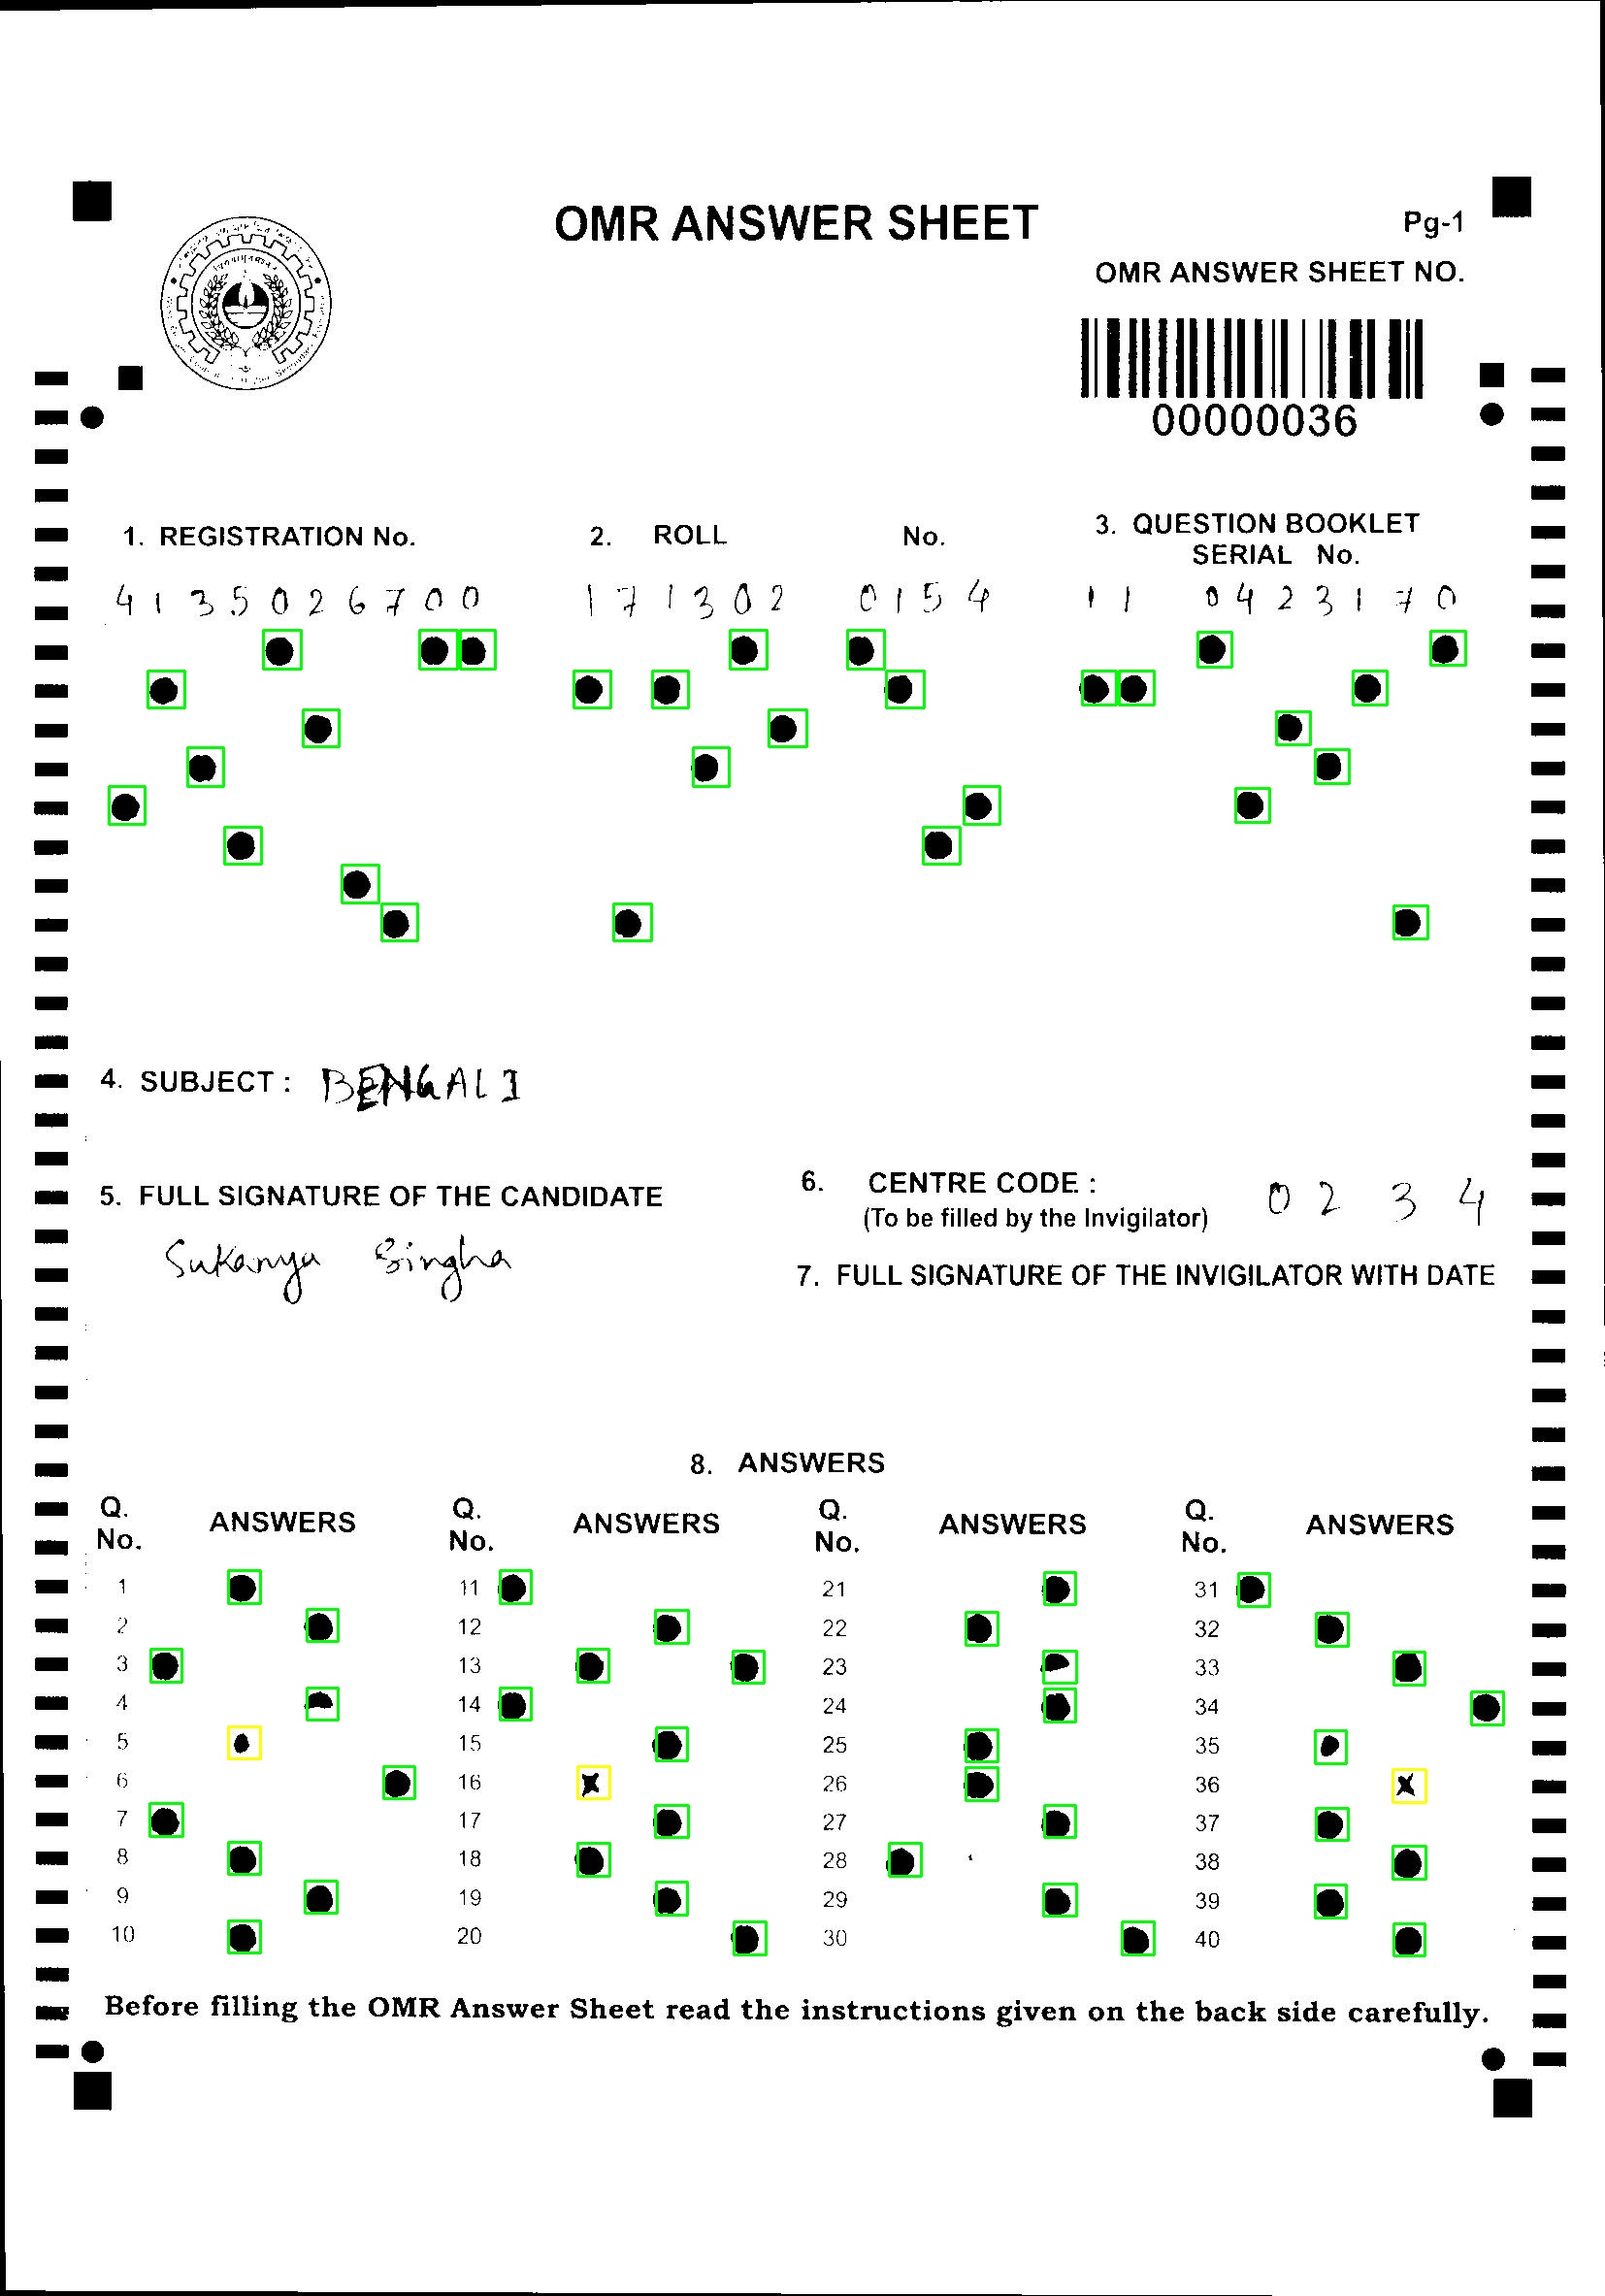 OMR ANSWER SHEET
Pg-1
OMR ANSWER SHEET NO.
00000036
1. REGISTRATION No.
2. ROLL No.
3. QUESTION BOOKLET
SERIAL No.
4 1 3 5 0 2 6 7 0 0
1 7 1 3 0 2 0 1 5 4
1 1 0 4 2 3 1 7 0
4. SUBJECT : BENGALI
5. FULL SIGNATURE OF THE CANDIDATE
Sukanya Singha
6. CENTRE CODE : 0 2 3 4
(To be filled by the Invigilator)
7. FULL SIGNATURE OF THE INVIGILATOR WITH DATE
8. ANSWERS
Q. No. ANSWERS Q. No. ANSWERS Q. No. ANSWERS Q. No. ANSWERS
1 11 21 31
2 12 22 32
3 13 23 33
4 14 24 34
5 15 25 35
6 16 26 36
7 17 27 37
8 18 28 38
9 19 29 39
10 20 30 40
Before filling the OMR Answer Sheet read the instructions given on the back side carefully.